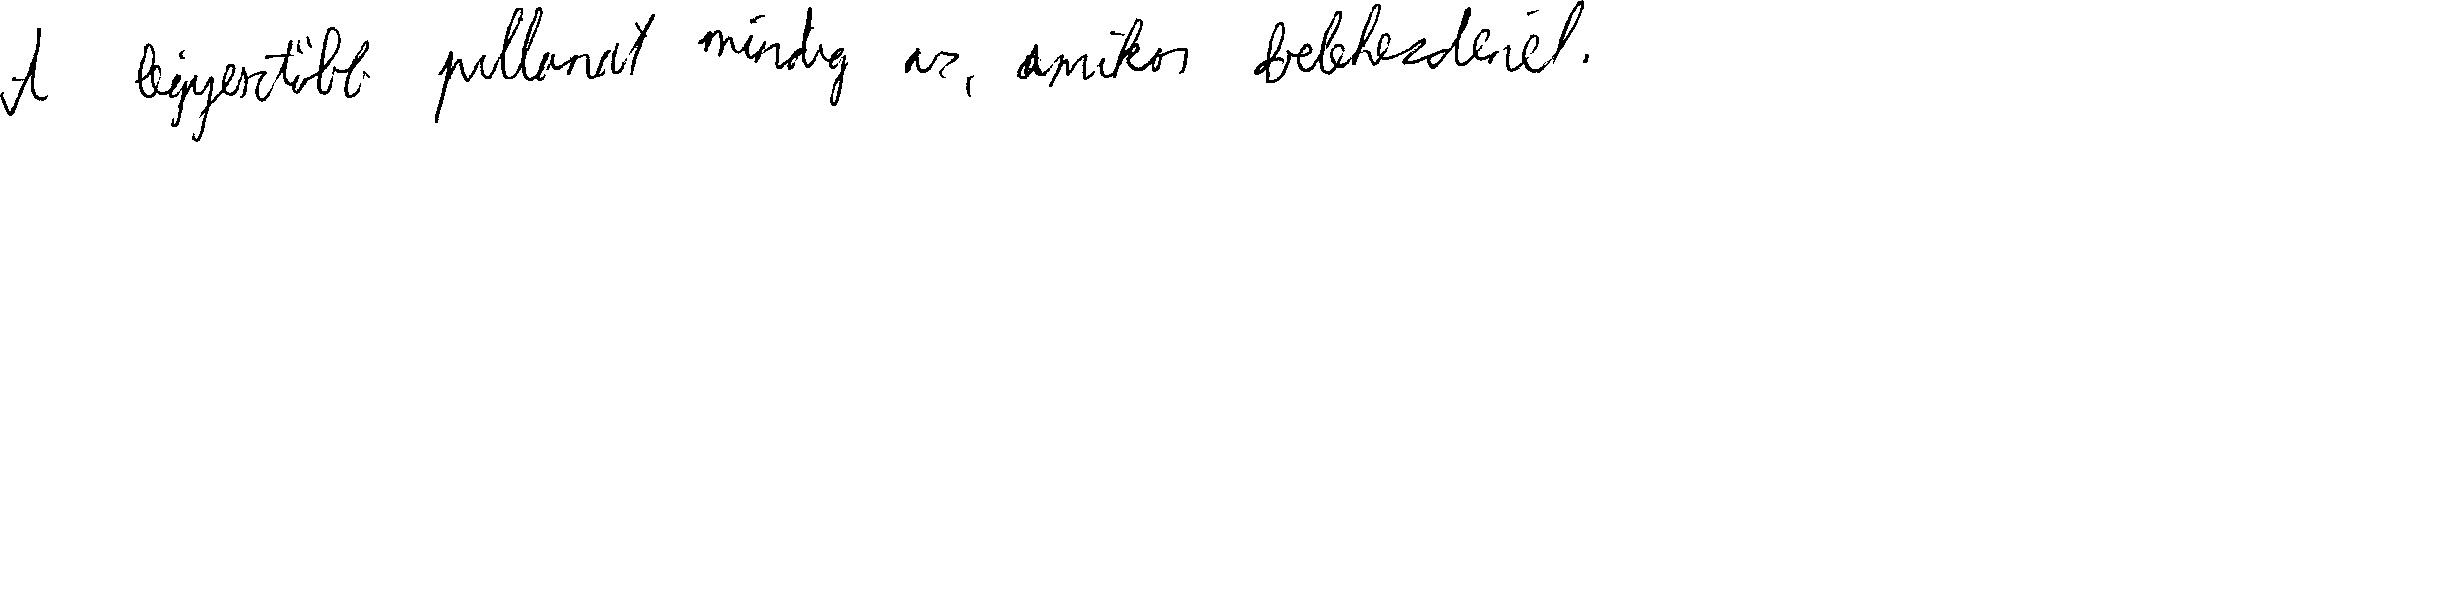 A légyesztőbb pillanat mindig az, amikor belekezdenél.